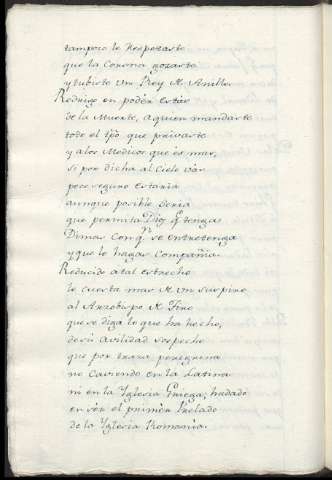 tampoco lo Respetaste
que la Corona gozaste
y tubiste Un Rey A Anillo.
Rodrigo en podèr està
de la Muerte, aquien mandaste
todo el tpõ que privaste
y alos Medicos que es mas,
si por dicha al Cielo vàs
poco seguro estarà
aunque posible serìa
que permita Dios q tenga
Dimas con qn se entretenga
y que lo hagas Compañia.
Reducido a tal estrecho
le cuesta mas A Un suspiro
al Arzobispo A
que se diga lo que ha hecho,
de sù Utilidad sospecho
que por traza peregrina
no Caviendo en la Latina
ni en la Yglesia Griega, ha dado
en sèr el primèr Prelado
de la Yglesia Romania.